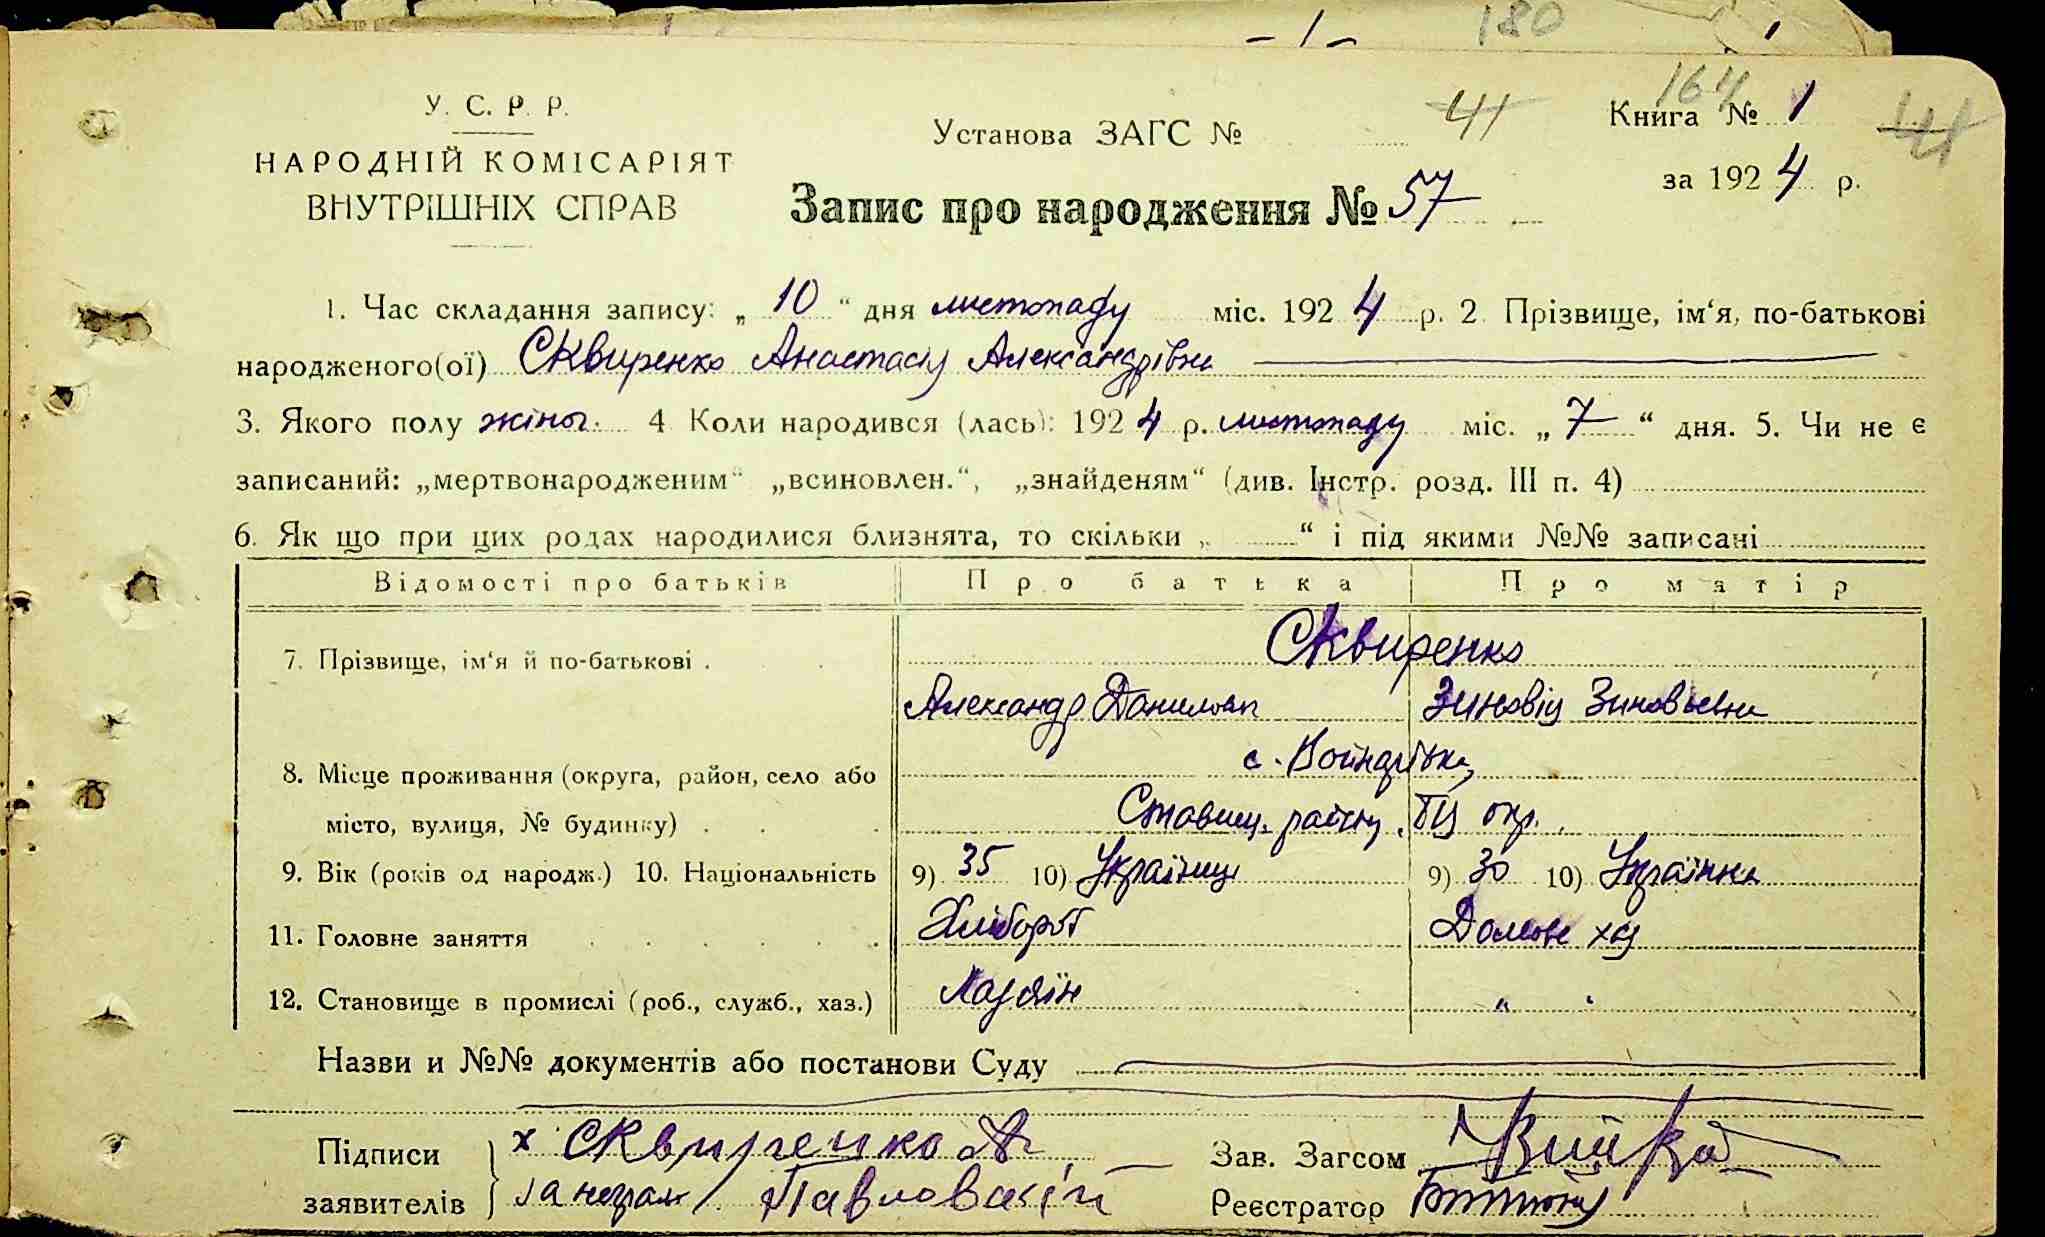 - 1 - 180
164
У. С. Р. Р.
НАРОДНІЙ КОМІСАРІЯТ
ВНУТРІШНІХ СПРАВ
Установа ЗАГС № 41
Книга № 1 41
за 1924 р.
Запис про народження № 57
1. Час складання запису: „ 10 “ дня листопаду міс. 1924 р. 2 Прізвище, ім‘я, по-батькові
народженого(ої) Сквиренко Анастасія Александрівна
3. Якого полу жіноч. 4 Коли народився (лась): 1924 р. листопаду міс. „ 7 “ дня. 5. Чи не є
записаний: „мертвонародженим“ „всиновлен.“, „знайденям“ (див. Інстр. розд. III п. 4)
6. Як що при цих родах народилися близнята, то скільки „ “ і під якими №№ записані
Відомості про батьків Про батька Про матір
7. Прізвище, ім‘я й по-батькові . Сквиренко
Александр Данилов Зиновія Зиновьевна
8. Місце проживання (округа, район, село або с.
місто, вулиця, № будинку) . . . Ставищ. району, БЦ окр.
9. Вік (років од народж.) 10. Національність 9) 35 10) Українець 9) 30 10) Українка
11. Головне заняття Хлібороб Домов. хаз
12. Становище в промислі (роб., служб., хаз.) Хазяїн " "
Назви и №№ документів або постанови Суду
Підписи х Сквиренко Зав. Загсом
заявителів за неграм. Павловский Реєстратор